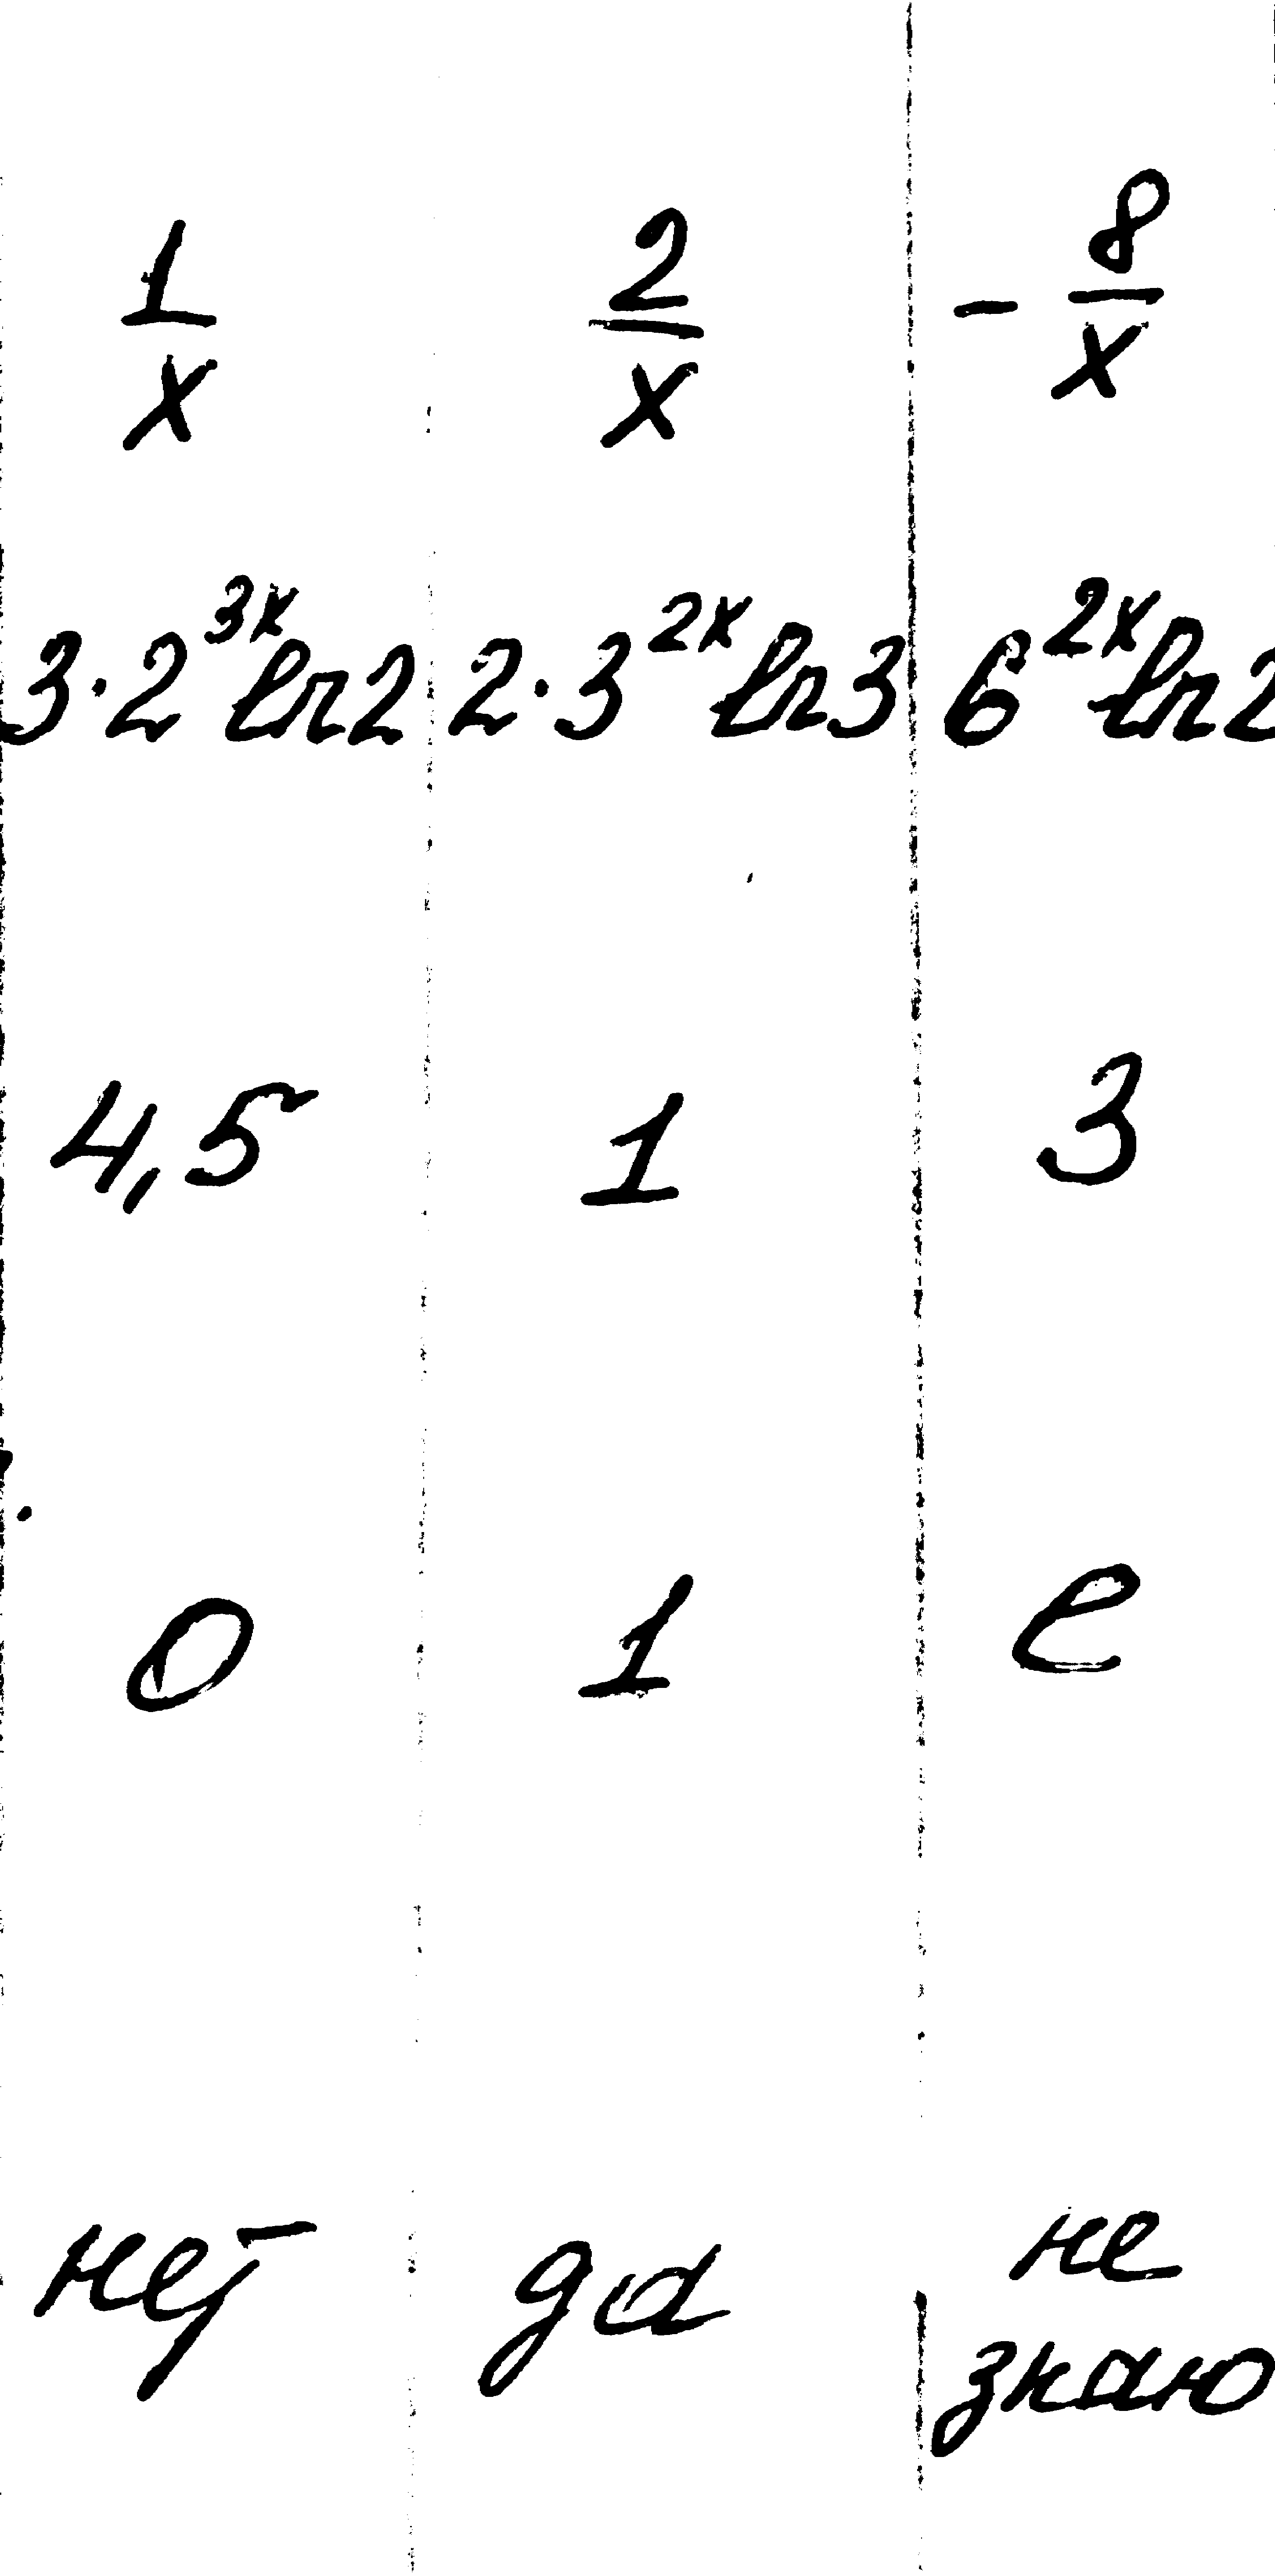 1/x 2/x - 8/x
3·2^3x ln2 2·3^2x ln3 6^2x ln2
4,5 1 3
0 1 e
нет да не
знаю